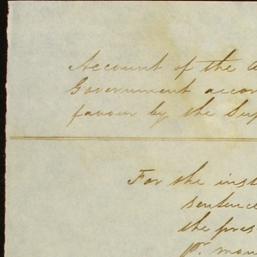 Account of the
Government accor
favour by the Sup
For the inst
sentence
the pres
pr. man